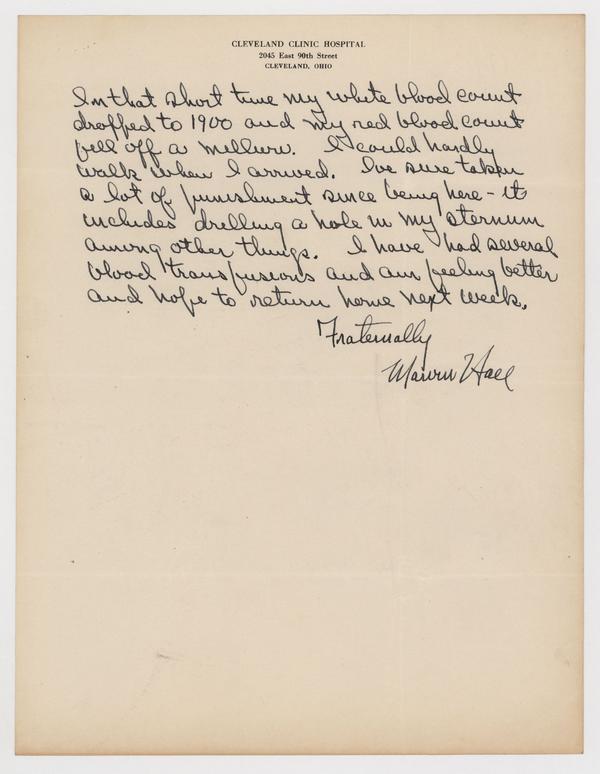 CLEVELAND CLINIC HOSPITAL
2045 East 90th Street
CLEVELAND, OHIO
In that short time my white blood count
dropped to 1900 and my red blood count
fell off a million. I could hardly
walk when I arrived. I've sure taken
a lot of punishment since being here - it
includes drilling a hole in my sternum
among other things. I have had several
blood transfusions and am feeling better
and hope to return home next week.
Fraternally
Marvin Hall